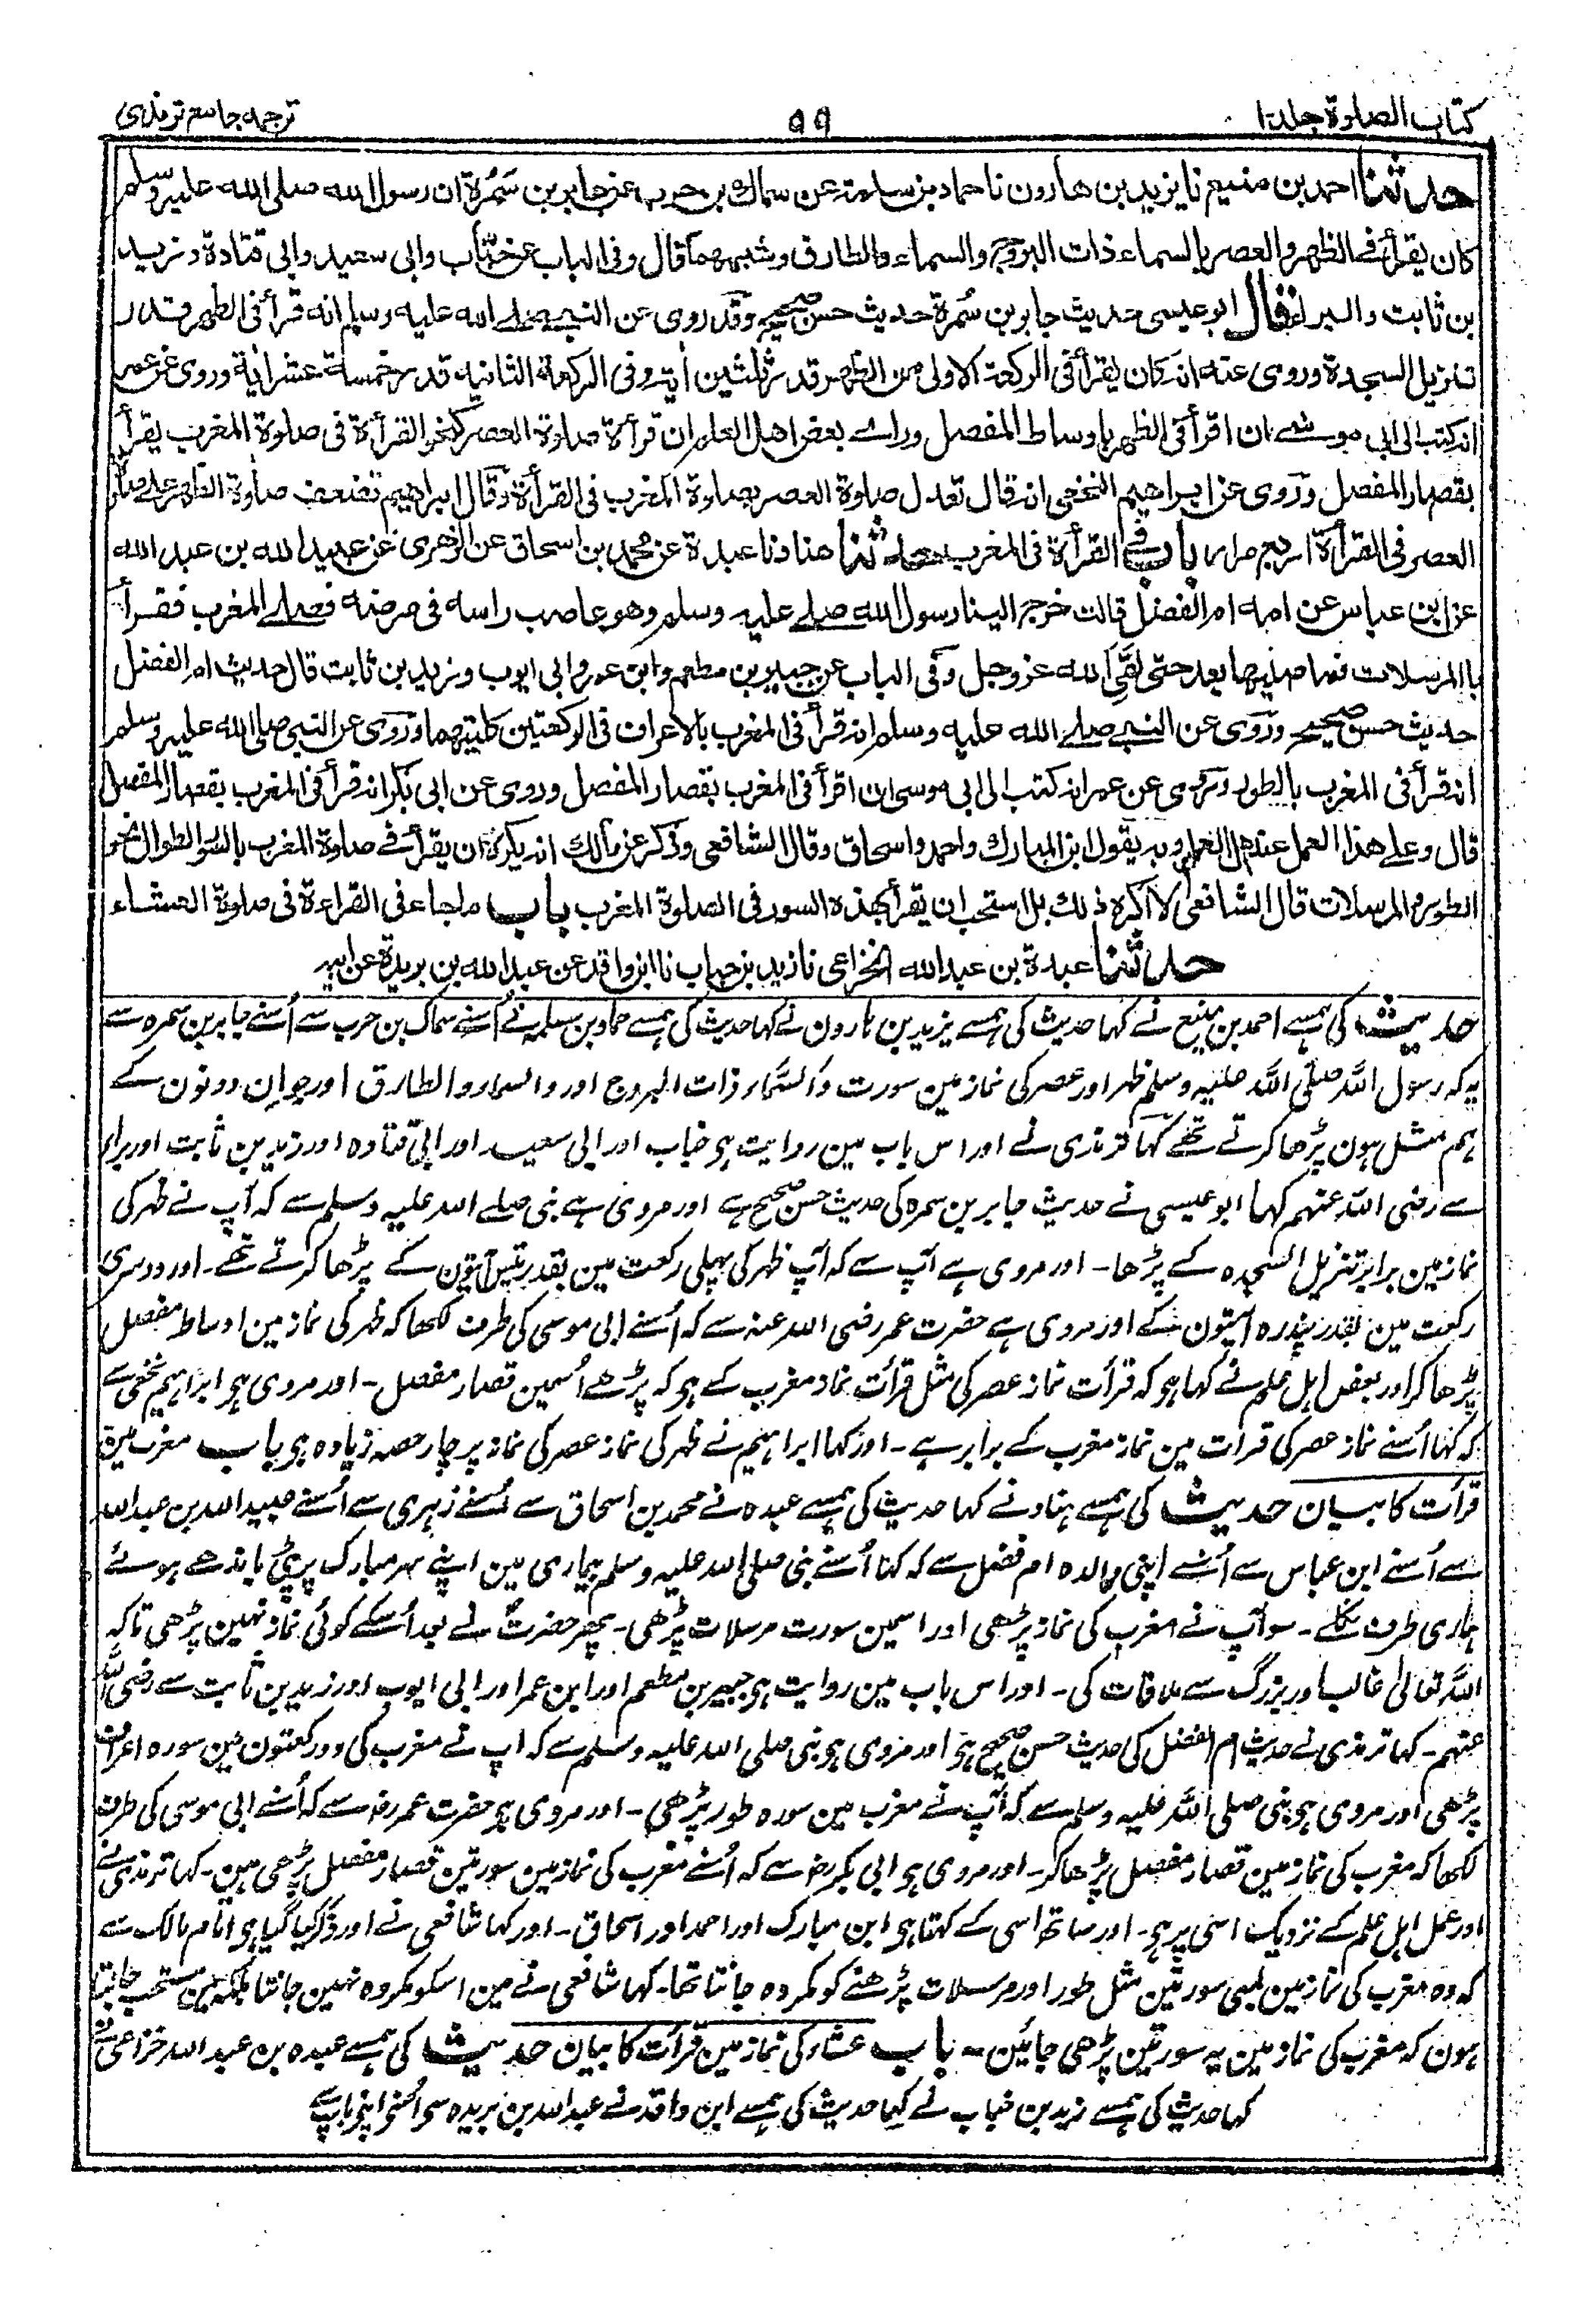 كتاب الصلوة جلد١
٩٩
ترجمه جامع ترمذی
حدثنا احمد بن منيع نا يزيد بن هارون نا حماد بن سلمة عن سماك بن حرب عن جابر بن سَمُرة ان رسول الله صلى الله عليه وسلم
كان يقرأ فى الظهر والعصر بالسماء ذات البروج والسماء والطارق وشبههما قال وفى الباب عن خبّاب وابى سعيد وابى قتادة وزيد
بن ثابت والبراء قال ابو عيسى حديث جابر بن سُمرة حديث حسن صحيح وقد روى عن النبى صلے الله عليه وسلم انه قرأ فى الظهر قدر
تنزيل السجدة وروى عنه انه كان يقرأ فى الركعة الاولى من الظهر قدر ثلثين اٰية وفى الركعة الثانيه قدر خمسة عشر اٰية وروى عن عمر
انه كتب الى ابى موسى ان اقرأ فى الظهر باوساط المفصل وراے بعض اهل العلم ان قرأة صلوة العصر كنحو القرأة فى صلوة المغرب يقرأ
بقصار المفصل وروى عن ابراهيم النخعى انه قال تعدل صلوة العصر بصلوة المغرب فى القرأة وقال ابراهيم تضعف صلوة الظهر على صلوة
العصر فى القرأة اربع مرار باب فى القرأة فى المغرب حدثنا هناد نا عبدة عن محمد بن اسحاق عن الزهرى عن عبيد الله بن عبد الله
عن ابن عباس عن امه ام الفضل قالت خرج الينا رسول الله صلے عليه وسلم وهو عاصب راسه فى مرضه فصلے المغرب فقرأ
باالمرسلات فما صليها بعد حتى لقى الله عز وجل وفى الباب عن جبير بن مطعم وابن عمر وابى ايوب وزيد بن ثابت قال حديث ام الفضل
حديث حسن صحيح وروى عن النبى صلے الله عليه وسلم انه قرأ فى المغرب بالاعراف فى الركعتين كلتيهما وروى عن النبى صلى الله عليه وسلم
انه قرأ فى المغرب بالطور وروى عن عمر انه كتب الى ابى موسى ان اقرأ فى المغرب بقصار المفصل وروى عن ابى بكر انه قرأ فى المغرب بقصار المفصل
قال وعلے هذا العمل عند اهل العلم وبه يقول ابن المبارك واحمد واسحاق وقال الشافعى وذكر عن مالك انه يكره ان يقرأ فى صلوة المغرب بالسور الطوال نحو
الطور والمرسلات قال الشافعى لا اكره ذلك بل استحب ان يقرأ بهذه السور فى الصلوة المغرب باب ماجاء فى القراءة فى صلوة العشاء
حدثنا عبدة بن عبد الله الخزاعى نا زيد بن حباب نا ابن واقد عن عبد الله بن بريدة عن ابيه
حدیث کی ہمسے احمد بن منیع نے کہا حدیث کی ہمسے یزید بن ہارون نے کہا حدیث کی ہمسے حماد بن سلمہ نے اُسنے سماک بن حرب سے اُسنے جابر بن سمرہ سے
یہ کہ رسول اللہ صلّی اللہ علیہ وسلم ظہر اور عصر کی نماز مین سورت والسّماء ذات البروج اور والسماء والطارق اور جو ان دونون کے
ہم مثل ہون پڑھا کرتے تھے کہا ترمذی نے اور اس باب مین روایت ہی خباب اور ابی سعید اور ابی قتادہ اور زید بن ثابت اور براء
سے رضی اللہ عنہم کہا ابو عیسی نے حدیث جابر بن سمرہ کی حدیث حسن صحیح ہے اور مروی ہے نبی صلے اللہ علیہ وسلم سے کہ آپ نے ظہر کی
نماز مین برابر تنزیل السجدہ کے پڑھا۔ اور مروی ہے آپ سے کہ آپ ظہر کی پہلی رکعت مین بقدر تیس آیتون کے پڑھا کرتے تھے۔ اور دوسری
رکعت مین بقدر پندرہ آیتون کے اور مروی ہے حضرت عمر رضی اللہ عنہ سے کہ اُسنے ابی موسی کی طرف لکھا کہ ظہر کی نماز مین اوساط مفصل
پڑھا کر اور بعض اہل علم نے کہا ہی کہ قرأت نماز عصر کی مثل قرأت نماز مغرب کے ہی کہ پڑھے اُسمین قصار مفصل۔ اور مروی ہی ابراہیم نخعی سے
کہ کہا اُسنے نماز عصر کی قرأت مین نماز مغرب کے برابر ہے۔ اور کہا ابراہیم نے ظہر کی نماز عصر کی نماز پر چار حصہ زیادہ ہی باب مغرب مین
قرأت کا بیان حدیث کی ہمسے ہناد نے کہا حدیث کی ہمسے عبدہ نے محمد بن اسحاق سے اُسنے زہری سے اُسنے عبید اللہ بن عبد اللہ
سے اُسنے ابن عباس سے اُسنے اپنی والدہ ام فضل سے کہ کہا اُسنے نبی صلی اللہ علیہ وسلم بیماری مین اپنے سر مبارک پر پٹی باندھے ہوئے
ہماری طرف نکلے۔ سو آپ نے مغرب کی نماز پڑھی اور اسمین سورت مرسلات پڑھی۔ پھر حضرت نے بعد اُسکے کوئی نماز نہین پڑھی تا کہ
اللہ تعالیٰ غالب اور بزرگ سے ملاقات کی۔ اور اس باب مین روایت ہی جبیر بن مطعم اور ابن عمر اور ابی ایوب اور زید بن ثابت سے رضی اللہ
عنہم۔ کہا ترمذی نے حدیث ام الفضل کی حدیث حسن صحیح ہی اور مروی ہی نبی صلی اللہ علیہ وسلم سے کہ آپ نے مغرب کی دو رکعتون مین سورہ اعراف
پڑھی اور مروی ہی نبی صلی اللہ علیہ وسلم سے کہ آپ نے مغرب مین سورہ طور پڑھی۔ اور مروی ہی حضرت عمر رضہ سے کہ اُسنے ابی موسی کی طرف
لکھا کہ مغرب کی نماز مین قصار مفصل پڑھا کر۔ اور مروی ہی ابی بکر رضہ سے کہ اُسنے مغرب کی نماز مین سورتین قصار مفصل پڑھی ہین۔ کہا ترمذی نے
اور عمل اہل علم کے نزدیک اسی پر ہی۔ اور ساتھ اسی کے کہتا ہی ابن مبارک اور احمد اور اسحاق۔ اور کہا شافعی نے اور ذکر کیا گیا ہی امام مالک سے
کہ وہ مغرب کی نماز مین لمبی سورتین مثل طور اور مرسلات پڑھنے کو مکروہ جانتا تھا۔ کہا شافعی نے مین اسکو مکروہ نہین جانتا بلکہ مین مستحب جانتا
ہون کہ مغرب کی نماز مین یہ سورتین پڑھی جائین۔ باب عشاء کی نماز مین قرأت کا بیان حدیث کی ہمسے عبدہ بن عبد اللہ خزاعی نے
کہا حدیث کی ہمسے زید بن خباب نے کہا حدیث کی ہمسے ابن واقد نے عبد اللہ بن بریدہ سی اُسنی اپنی باپ سے